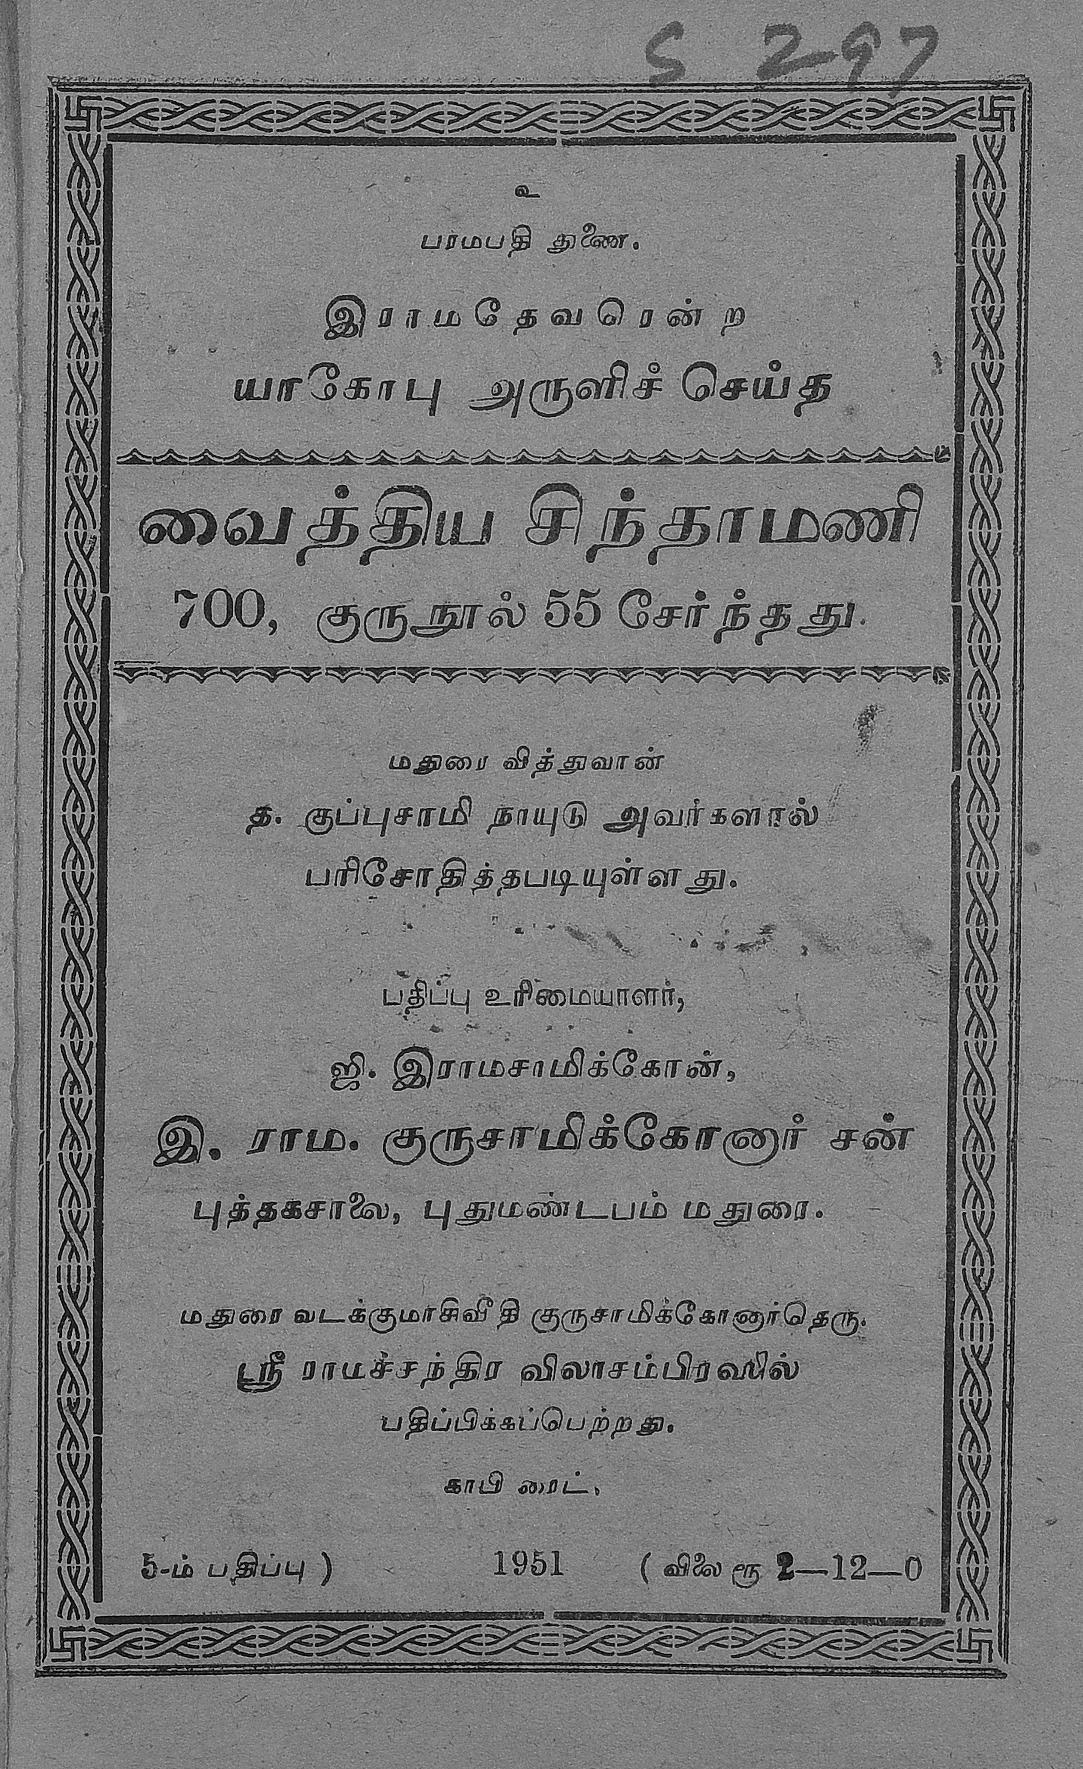 S 297
உ
பரமபதி துணை.
இராமதேவரென்ற
யாகோபு அருளிச் செய்த
வைத்திய சிந்தாமணி
700, குருநூல் 55 சேர்ந்தது.
மதுரை வித்துவான்
த. குப்புசாமி நாயுடு அவர்களால்
பரிசோதித்தபடியுள்ளது.
பதிப்பு உரிமையாளர்,
ஜி. இராமசாமிக்கோன்,
இ. ராம. குருசாமிக்கோனார் சன்
புத்தகசாலை, புதுமண்டபம் மதுரை.
மதுரை வடக்குமாசிவீதி குருசாமிக்கோனார்தெரு.
ஸ்ரீ ராமச்சந்திர விலாசம்பிரஸில்
பதிப்பிக்கப்பெற்றது.
காபி ரைட்.
5-ம் பதிப்பு ) 1951 ( விலை ரூ 2—12—0